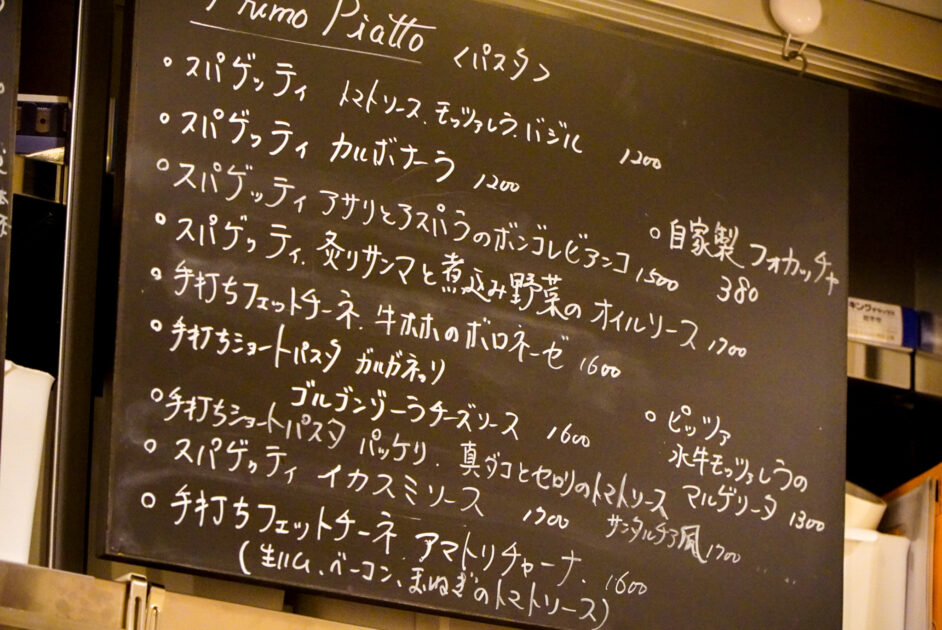 Primo Piatto <パスタ>
○スパゲッティ トマトソース、モッツァレラ、バジル 1200
○スパゲッティ カルボナーラ 1200
○スパゲッティ アサリとアスパラのボンゴレビアンコ 1500
○スパゲッティ、炙りサンマと煮込み野菜のオイルソース 1700
○手打ちフェットチーネ、牛ホホのボロネーゼ 1600
○手打ちショートパスタ ガルガネッリ
ゴルゴンゾーラチーズソース 1600
○手打ちショートパスタ パッケリ、真ダコとセロリのトマトソース
サンタルチア風 1700
○スパゲッティ イカスミソース 1700
○手打ちフェットチーネ、アマトリチャーナ、1600
(生ハム、ベーコン、玉ねぎのトマトソース)
○自家製フォカッチャ
380
○ピッツァ
水牛モッツァレラの
マルゲリータ 1300